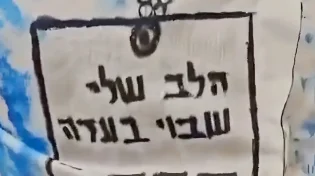 הלב שלי
שבוי בעזה